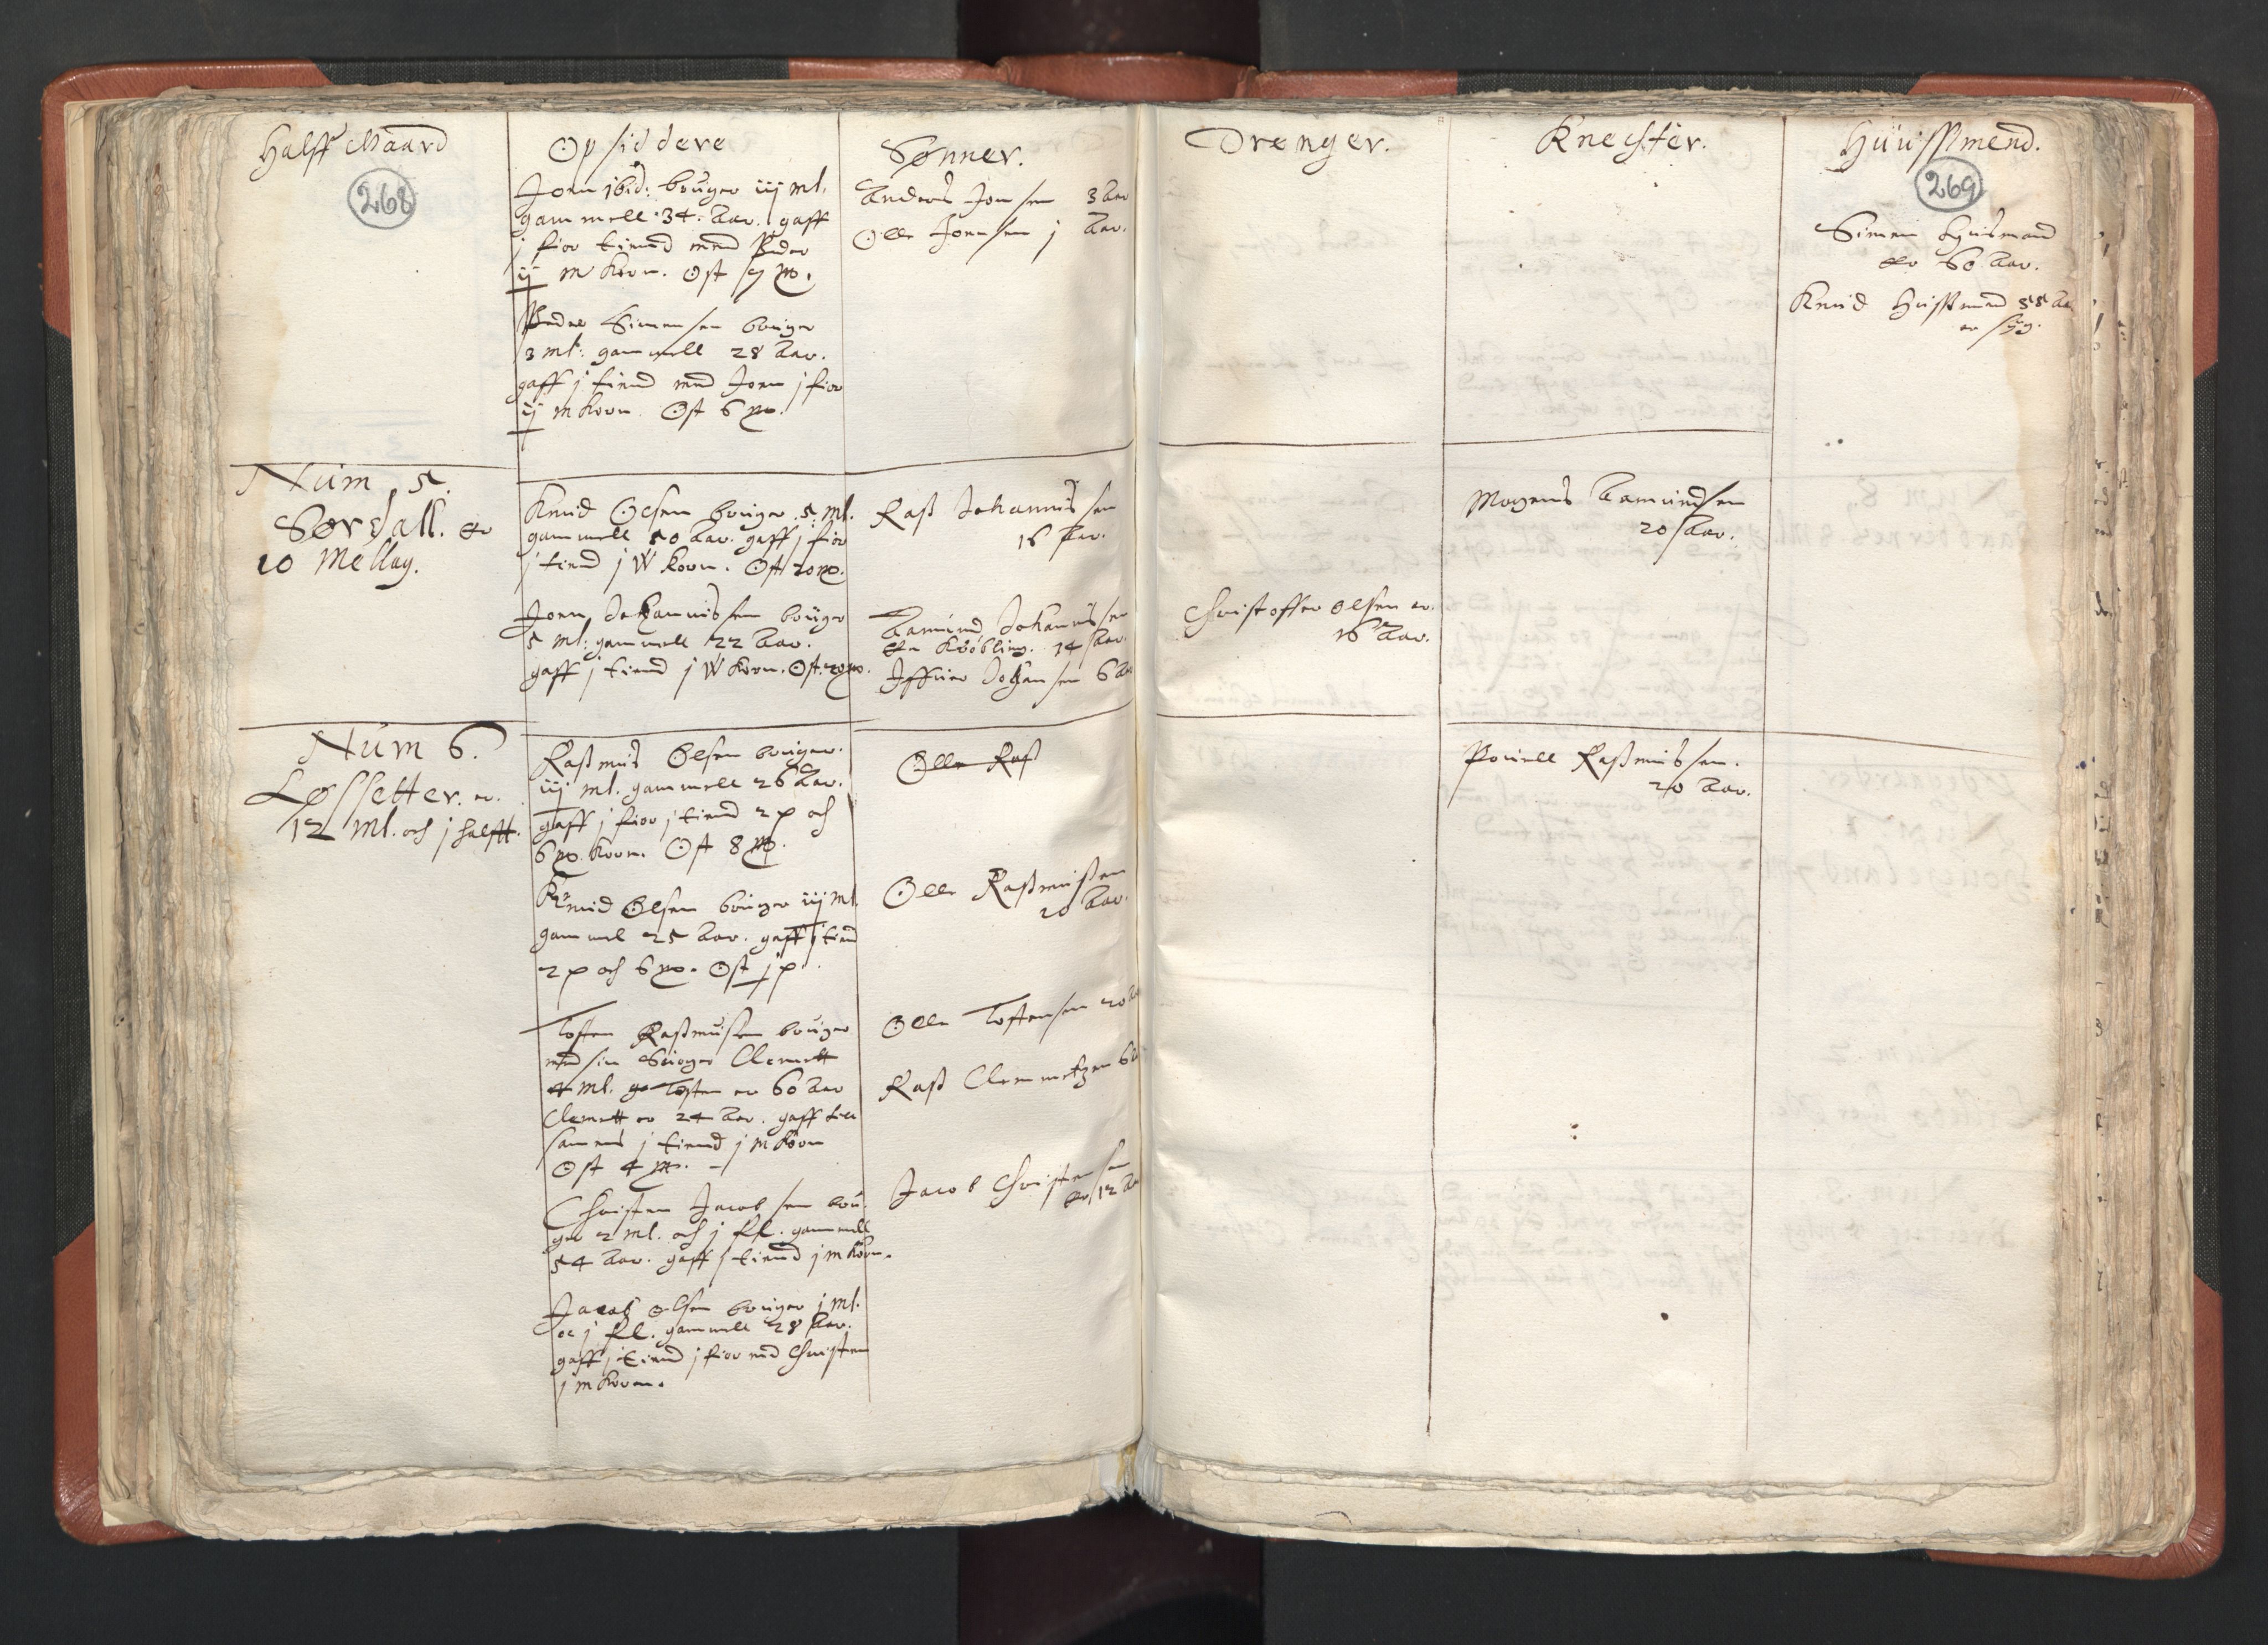 Halff Maard
268
Opsiddere
Joen ibid: bruger iij ml.
gammell 34. Aar. gaff
j fior tiend med Peder
ij m korn. Ost 7 m.
Peder Simensen bruger
3 ml: gammell 28 Aar.
gaff j tiend med Joen j fior
ij m korn. Ost 6 m.
Sønner.
Anders Joensen 3 Aar
Olle Joensen j Aar.
Num 5.
Sørdall. er
10 Mellag.
Knud Olsen bruger 5 ml.
gammell 50 Aar. gaff j fior
j tiend j W korn. Ost 20 m.
Joen Johannissen bruger
5 ml: gammell 22 Aar.
gaff j tiend j W korn. Ost 20 m.
Rass Johannissen
16 Aar.
Aamund Johannissen
er Krøbling. 14 Aar.
Iffuer Johansen 6 Aar
Num 6.
Løssetter. er.
12 ml. och j halfft.
Rassmus Olsen bruger.
iij ml. gammell 26 Aar.
gaff j fior j tiend 2 p och
6 m. korn. Ost 8 m.
Knud Olsen bruger iij ml
gammel 25 Aar. gaff j tiend
2 p och 6 m. Ost j p.
Tosten Rassmussen bruger
med sin Suoger Clemett
4 ml. ga Tosten er 60 Aar
Clemett er 24 Aar. gaff till
samens j tiend j m korn
Ost 4 m.
Christen Jacobsen bru
ger 2 ml. och j fl. gammell
54 Aar. gaff j tiend j m korn.
Jacob Olsen bruger j ml.
oc j fl. gammell 28 Aar.
gaff j tiend j fior med Christen
j m korn.
Olle Rass
Olle Rassmussen
20 Aar.
Olle Tostensen 20
Rass Clemmetzen 6
Jacob Christensen
er 12 Aar
Drenger.
Christoffer Olsen er.
16 Aar.
Knechter.
Mogens Aamundsen
20 Aar.
Pouell Rassmussen.
20 Aar.
Huussmend.
269
Simen Husmand
er 60 Aar.
Knud Hussmand 55 Aar
er syg.